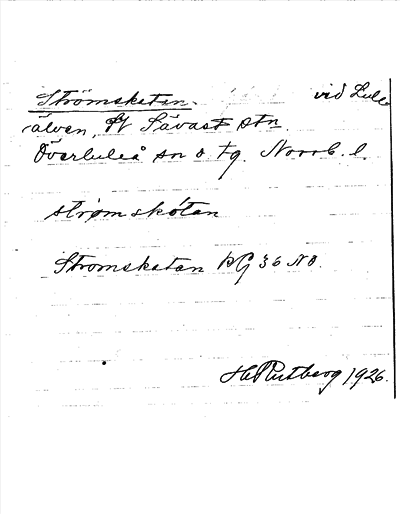 Strömskatan. vid Lule
älven, SV Sävast stn.
Överluleå sn o. tg. Norrb. l.
strömskátan
Stromskatan KG 36 NO.
H. Rutberg 1926.